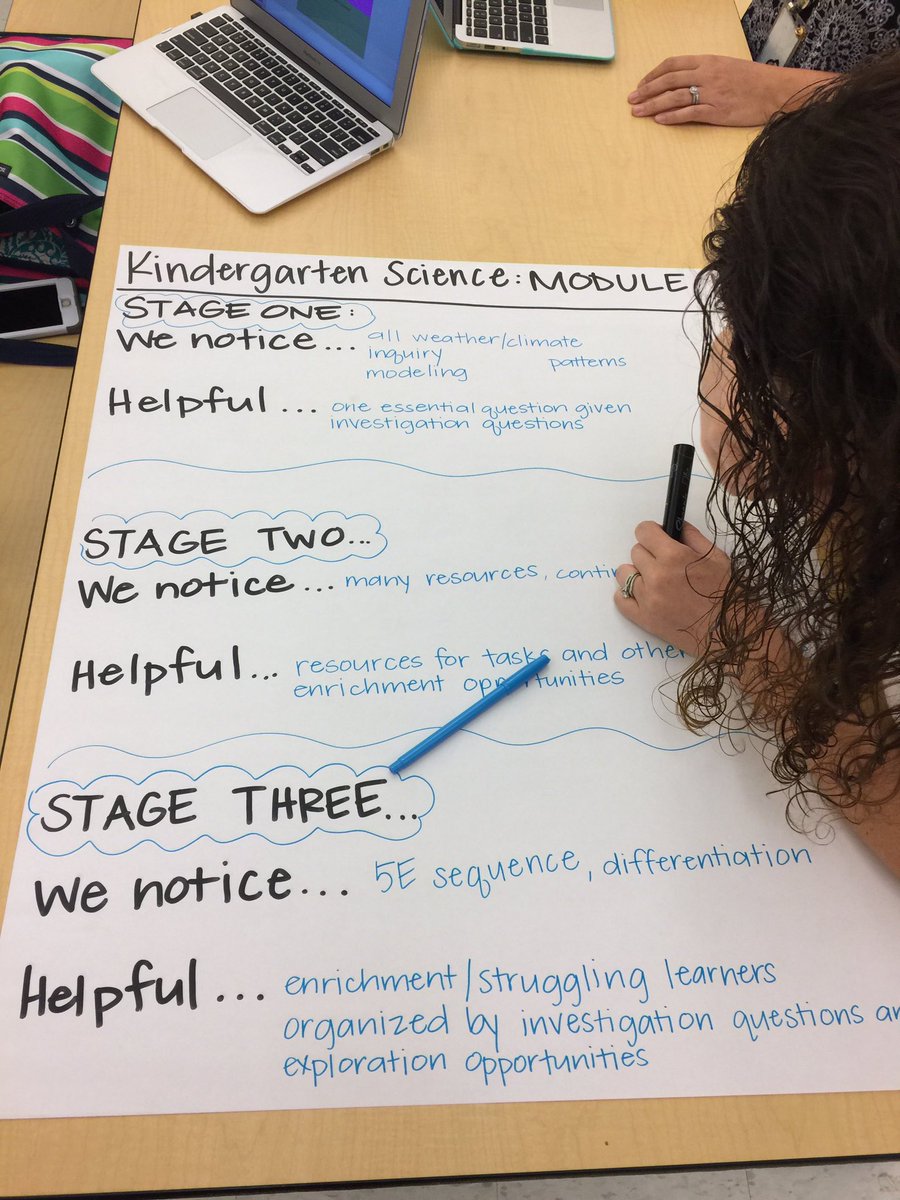 Kindergarten Science: MODULE
STAGE ONE:
We notice... all weather/climate
inquiry patterns
modeling
Helpful... one essential question given
investigation questions
STAGE TWO...
We notice... many resources,
Helpful... resources for tasks and other
enrichment opportunities
STAGE THREE...
We notice... 5E sequence, differentiation
Helpful... enrichment/struggling learners
organized by investigation questions
exploration opportunities